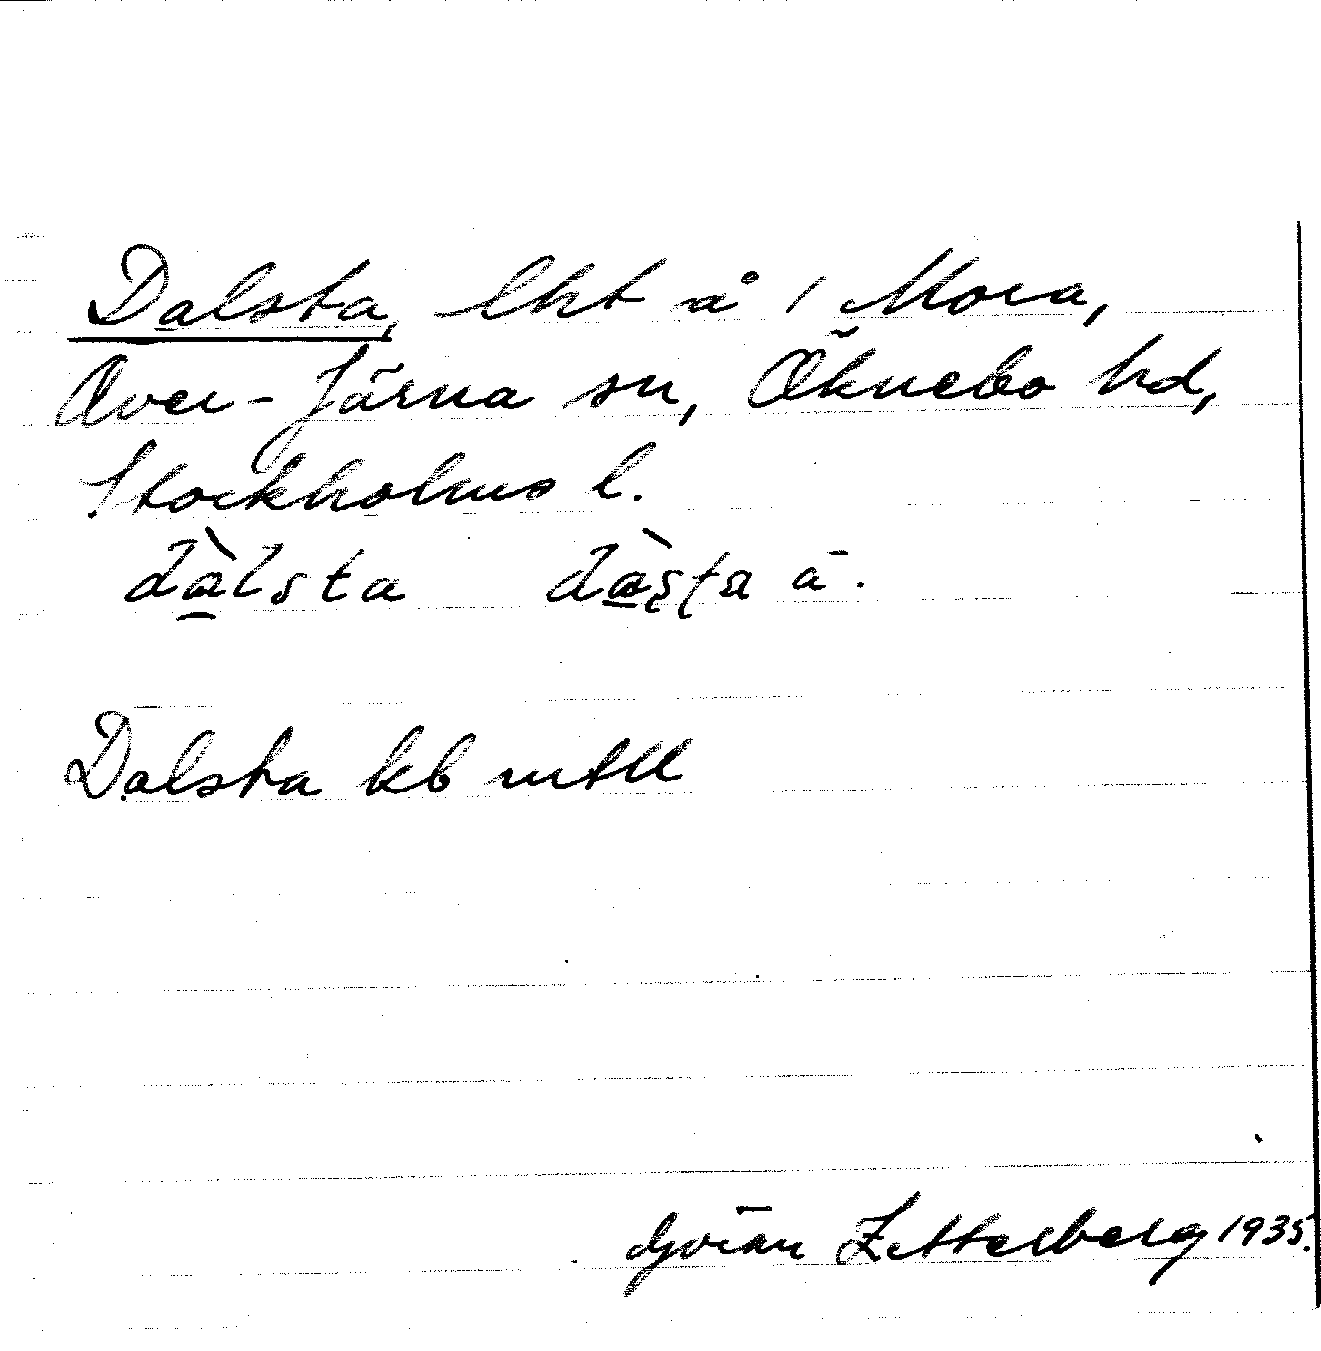 Dalsta, lht å 1 Mora,
Över-Järna sn, Öknebo hd,
Stockholms l.
dàlsta dàʂʈa ä.
Dalsta kb mtll
Göran Zetterberg 1935.